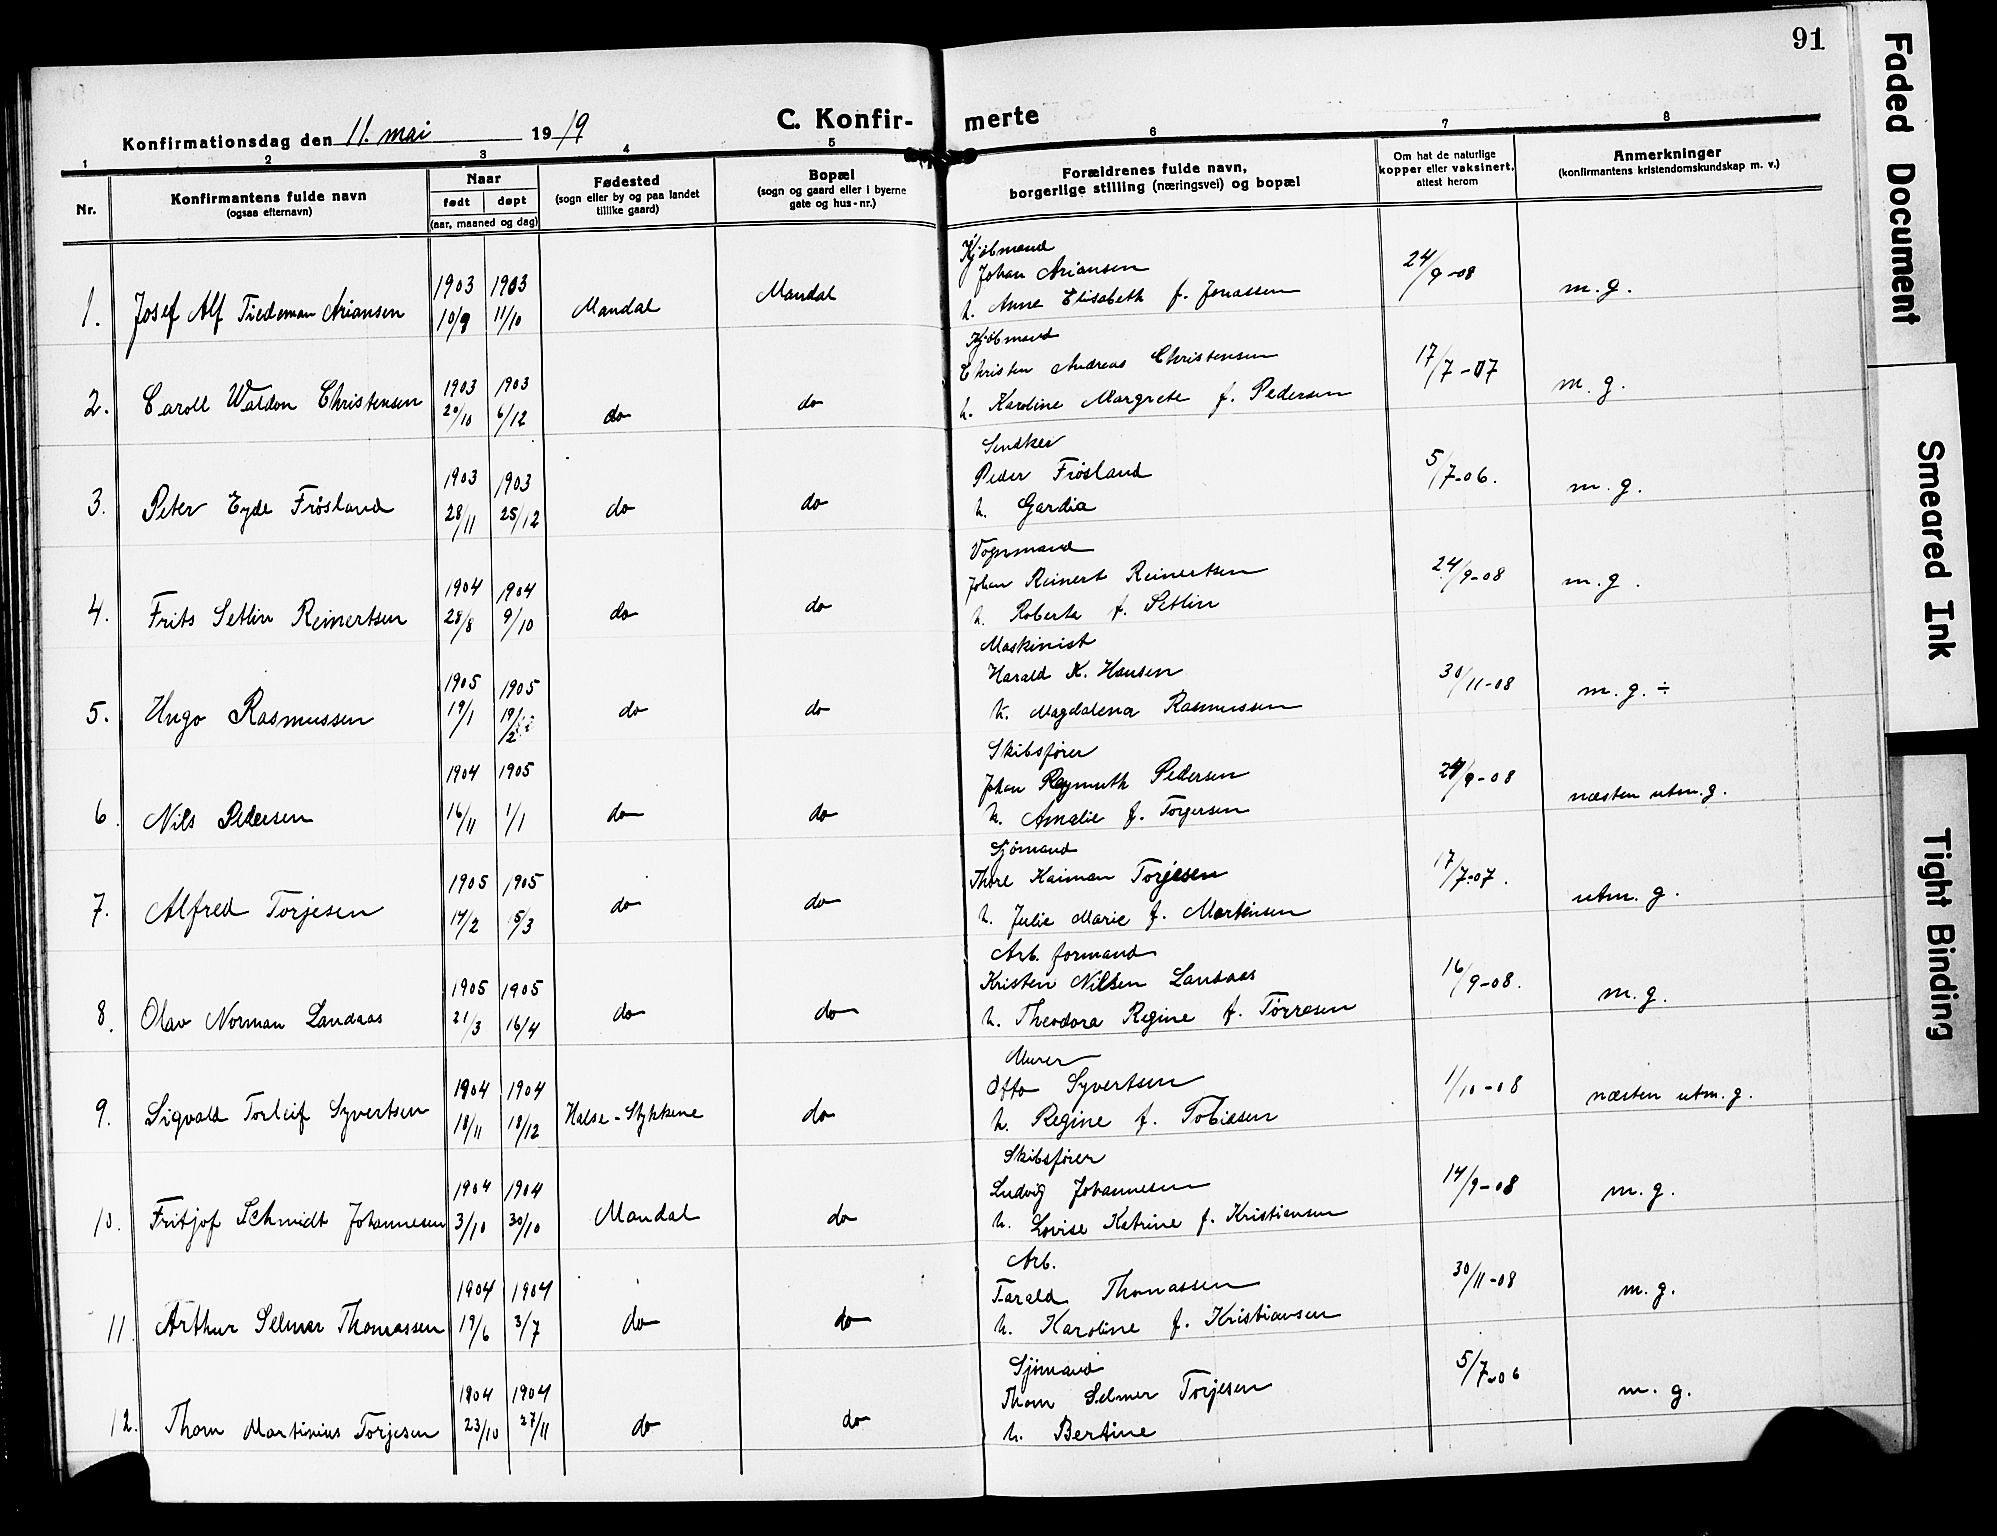 91
Konfirmationsdag den 11. mai 1919
C. Konfirmerte
1 2 3 4 5 6 7 8
Nr.
Konfirmantens fulde navn
(ogsaa efternavn)
Naar
født døpt
(aar, maaned og dag)
Fødested
(sogn eller by og paa landet
tillike gaard)
Bopæl
(sogn og gaard eller i byerne
gate og hus-nr.)
Forældrenes fulde navn,
borgerlige stilling (næringsvei) og bopæl
Om hat de naturlige
kopper eller vaksinert,
attest herom
Anmerkninger
(konfirmantens kristendomskundskap m. v.)
Kjøbmand
1903 1903 Johan Ariansen 24/9-08
1. Josef Alf Tiedeman Ariansen 10/9 11/10 Mandal Mandal h. Anne Elisabeth f. Jonassen m. g.
Kjøbmand
1903 1903 Christen Andreas Christensen 17/7-07
2. Caroll Waldon Christensen 20/10 6/12 do do h. Karoline Margrete f. Pedersen m. g.
Snedker
1903 1903 Peder Frøsland 5/7-06.
3. Peter Eyde Frøsland 28/11 25/12 do do h. Gardia m. g.
Vognmand
1904 1904 Johan Reinert Reinertsen 24/9-08
4. Frits Setlin Reinertsen 28/8 9/10 do do h. Roberta f. Setlin m. g.
Maskinist
1905 1905 Harald K. Hansen 30/11-08
5. Hugo Rasmussen 19/1 19/2 do do h. Magdalena Rasmussen m. g. ÷
Skibsfører
1904 1905 Johan Pedersen 24/9-08
6. Nils Pedersen 16/11 1/1 do do h. Amalie f. Torgersen næsten utm. g.
Sjømand
1905 1905 Thore Kaiman Torjesen 17/7-07.
7. Alfred Torjesen 14/2 5/3 do do h. Julie Marie f. Mortensen utm. g.
Arb. formand
1905 1905 Kristen Nilsen Landaas 16/9-08.
8. Olav Norman Landaas 21/3 16/4 do do h. Theodora Regine f. Tørresen m. g.
Murer
1904 1904 Otto Syvertsen 1/10-08
9. Sigvald Torleif Syvertsen 18/11 18/12 Halse-Stykkene do h. Regine f. Tobiasen næsten utm. g.
Skibsfører
1904 1904 Ludvig Johannesen 14/9-08
10. Fritjof Schmidt Johannesen 3/10 30/10 Mandal do h. Lovise Katrine f. Kristiansen m. g.
Arb.
1904 1904 Tarald Thomassen 30/11-08
11. Arthur Selmer Thomassen 19/6 3/7 do do h. Karoline f. Kristiansen m. g.
Sjømand
1904 1904 Thom Selmer Torjesen 5/7-06
12. Thom Martinius Torjesen 23/10 27/11 do do h. Bertine m. g.
Faded Document
Smeared Ink
Tight Binding